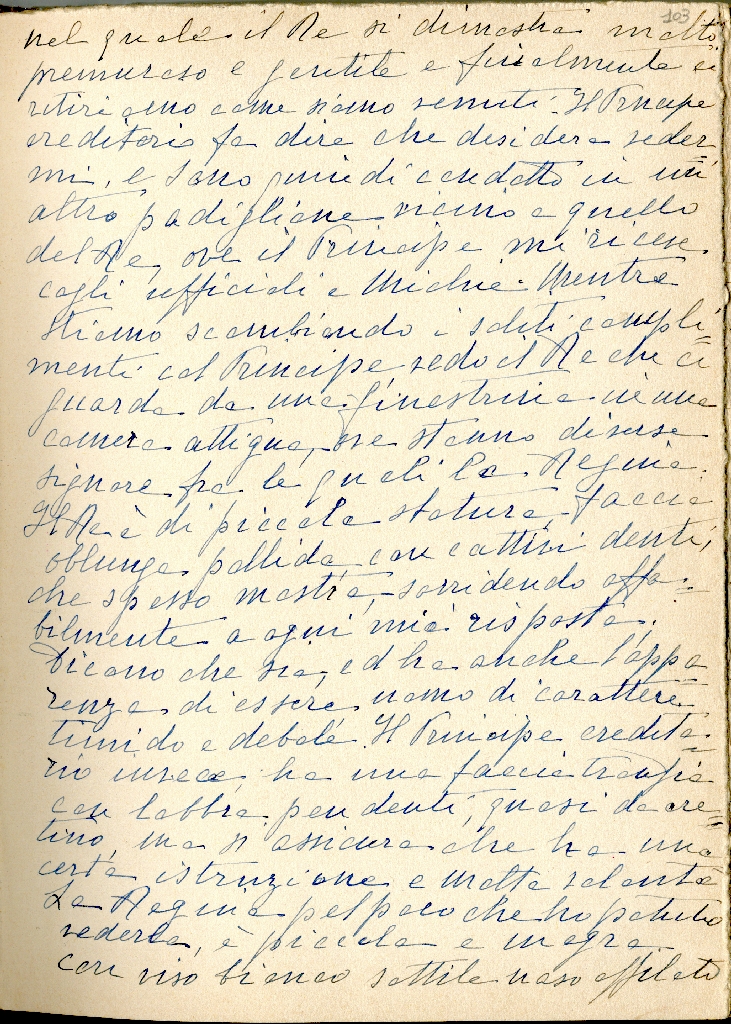 103
nel quale il Re si dimostra molto
premuroso e gentile e finalmente ci
ritiriamo come siamo venuti. Il Principe
ereditario fa dire che desidera veder=
mi, e sono quindi condotto in un
altro padiglione vicino a quello
del Re, ove il Principe mi riceve
cogli ufficiali e Michie. Mentre
stiamo scambiando i soliti compli=
menti col Principe, vedo il Re che ci
guarda da una finestrina in una
camera attigua, ove stanno diverse
signore fra le quali la Regina.
Il Re è di piccola statura, faccia
oblunga pallida, con cattivi denti,
che spesso mostra, sorridendo affa=
bilmente a ogni mia risposta.
Dicono che sia, ed ha anche l'appa=
renza di essere uomo di carattere
timido e debole. Il Principe eredita=
rio invece, ha una faccia tronfia
con labbra pendenti, quasi da cre=
tino, ma si assicura che ha una
certa istruzione e molta volontà
La Regina pel poco che ho potuto
vederla, è piccola e magra
con viso bianco sottile naso affilato